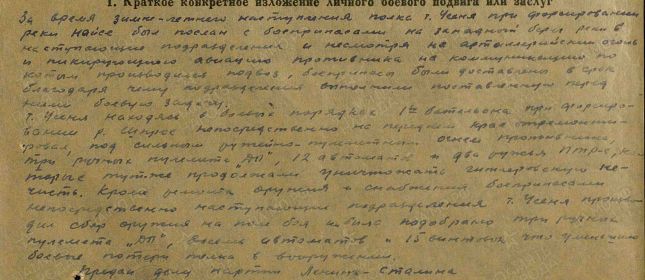 1. Краткое конкретное изложение личного боевого подвига или заслуг
За время зимне-летнего наступления полка т. Усеня при форсировании
реки Найсе был послан с боеприпасами на западный берег реки в
наступающие подразделения и несмотря на артиллерийский огонь
и пикирующую авиацию противника на коммуникацию по
которым производился подвоз, боеприпасы были доставлены в срок
благодаря чему подразделения выполнили поставленную перед
ними боевую задачу.
т. Усеня находясь в боевых порядках 1го батальона при форсиро-
вании р. Шпрее непосредственно на переднем крае отремонти-
ровал, под сильным ружейно-пулеметным огнем противника,
три ручных пулемета "ДП", 12 автоматов и два ружья ПТР, ко-
торые тут же продолжали уничтожать гитлеровскую не-
чисть. Кроме ремонта оружия и снабжения боеприпасами
непосредственно наступающие подразделения т. Усеня произво-
дил сбор оружия на поле боя и было подобрано три ручных
пулемета "ДП", восемь автоматов и 15 винтовок что уменьшило
боевые потери полка в вооружении.
Предан делу партии Ленина-Сталина